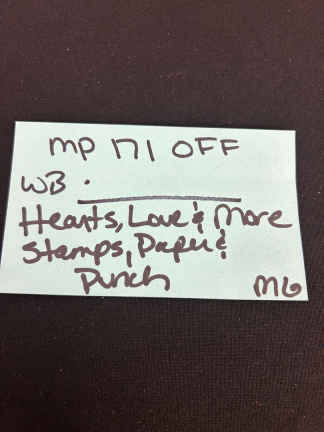 MP 171 OFF
WB . ___________
Hearts, Love & More
Stamps, Paper &
Punch
MG